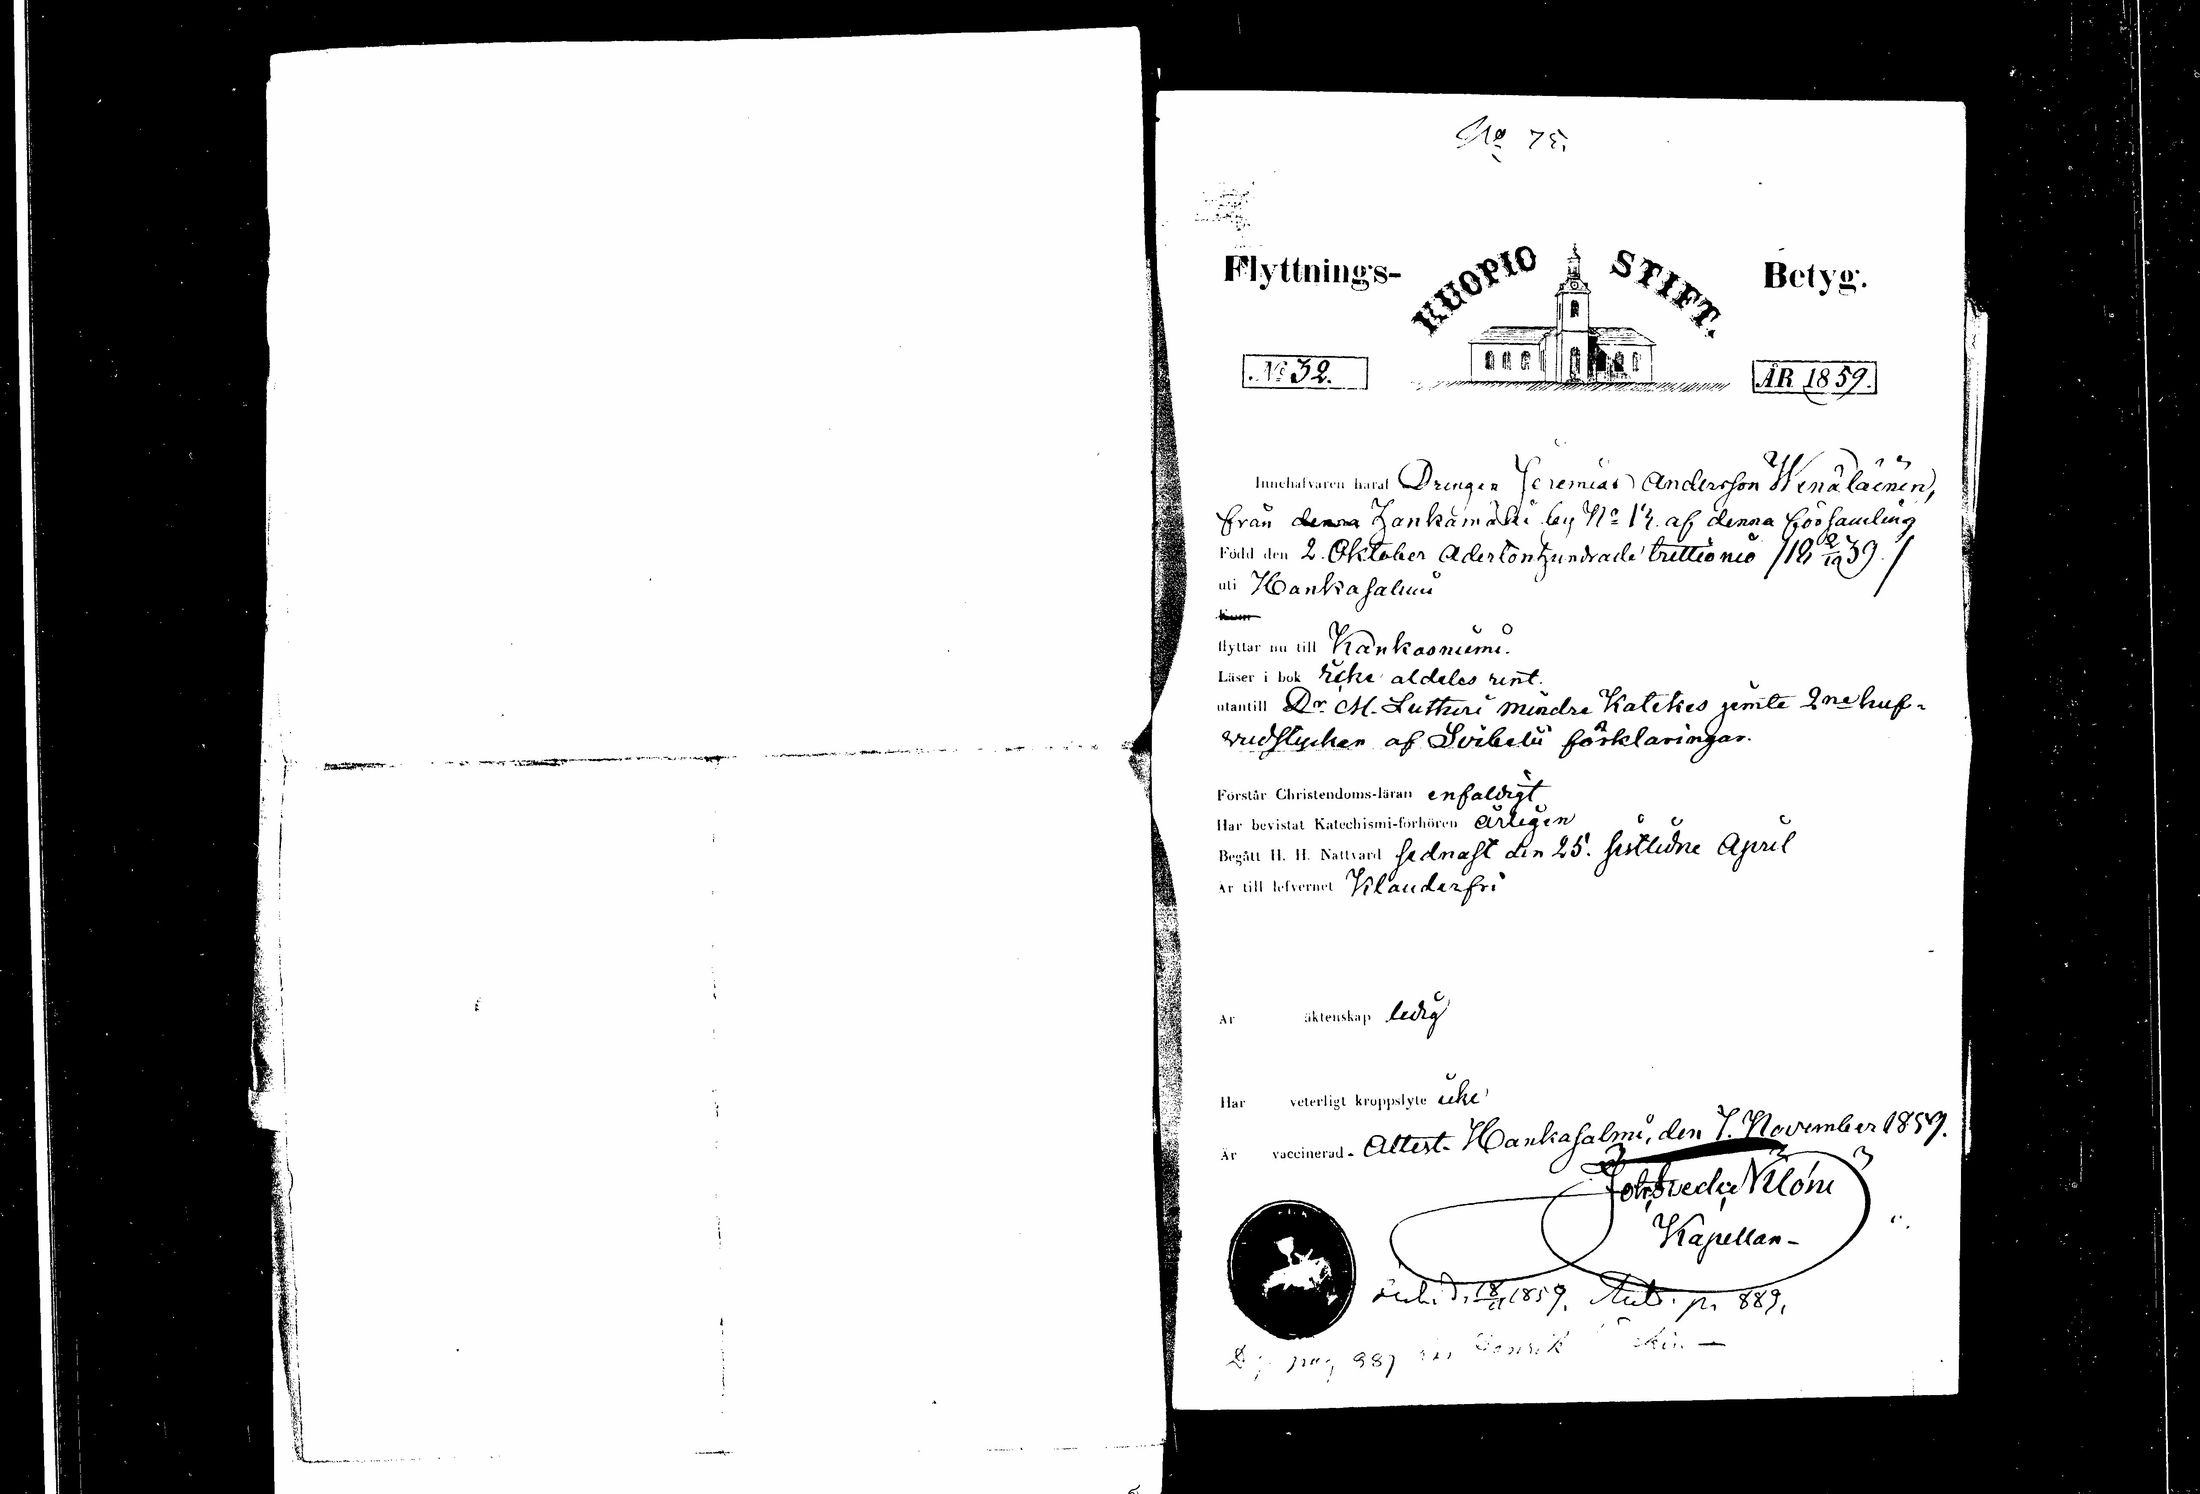 No 75.
Flyttnings- KUOPIO STIFT. Betyg.
No 32. ÅR 1859.
Innehafvaren häraf Drengen Jeremias Andersson Wenäläinen,
från denna Hankamäki by No 17. af denna församling
Född den 2. Oktober Adertonhundrade trettionio /18 2/10 39./
uti Hankasalmi
kom
flyttar nu till Kankasniemi.
Läser i bok icke aldeles rent.
utantill Dr. M. Lutheri mindre Katekes jemte 2ne huf-
vudstycken af Svibelii förklaringar.
Förstår Christendoms-läran enfaldigt
Har bevistat Katechismi-förhören årligen
Begått H. H. Nattvard sednast den 25. sistledne April
Är till lefvernet Klanderfri
Är äktenskap ledig
Har veterligt kroppslyte icke
Är vaccinerad. Attest. Hankasalmi, den 7. November 1859.
Kapellan
18/11 1859. p. 889.
pag 889 Henrik